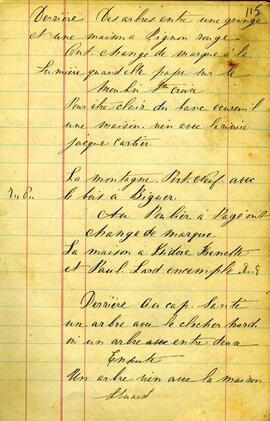 115
Derrière Des arbres entre une grange
et une maison a Pignon rouge
Ont change de marque a la
Lumière quand elle passe sur le
Moulin Ste Croix
Pour être clair du banc
une maison rien avec la rivière
Jacque Cartier
La montagne Port Neuf avec
le bois a Biguer
Au Poulier à Pagé ont
change de marque
La maison a Isidore Frenette
et Paul Lard ensemple
Derrière Au cap Sante
un arbre avec le clocher
un arbre avec entre deux
Ensuite
Un arbre rien avec la maison
Stuard